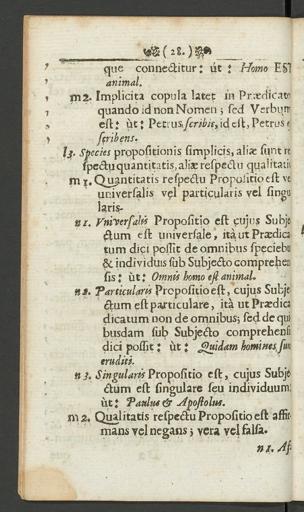 (28.)
que connectitur: ùt: Homo EST
animal.
m 2. Implicita copula latet in Prædicato
quando id non Nomen; sed Verbum
est: ùt: Petrus scribit, id est, Petrus
scribens.
l 3. Species propositionis simplicis, aliæ sunt re
spectu quantitatis, aliæ respectu qualitatis
m 1. Quantitatis respectu Propositio est ve
universalis vel particularis vel singu
laris.
n 1. Universalis Propositio est cujus Subje
ctum est universale, ità ut Prædica
tum dici possit de omnibus speciebu
& individuis sùb Subjecto comprehen
sis: ùt: Omnis homo est animal.
n 2. Particularis Propositio est, cujus Subje
ctum est particulare, ità ut Prædica
dicatum non de omnibus; sed de qui
busdam sùb Subjecto comprehensi
dici possit: ùt: Quidam homines sun
eruditi.
n 3. Singularis Propositio est, cujus Subje
ctum est singulare seu individuum:
ùt: Paulus & Apostolus.
m 2. Qualitatis respectu Propositio est affir
mans vel negans; vera vel falsa.
n 1. Af